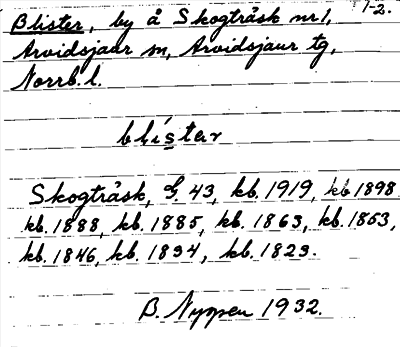 1-2.
Blister, by å Skogträsk nr 1,
Arvidsjaur sn, Arvidsjaur tg,
Norrb. l.
blístar
Skogträsk, G. 43, kb. 1919, kb 1898
kb. 1888, kb. 1885, kb. 1863, kb. 1853,
kb. 1846, kb. 1834, kb. 1823.
B. Nyman 1932.